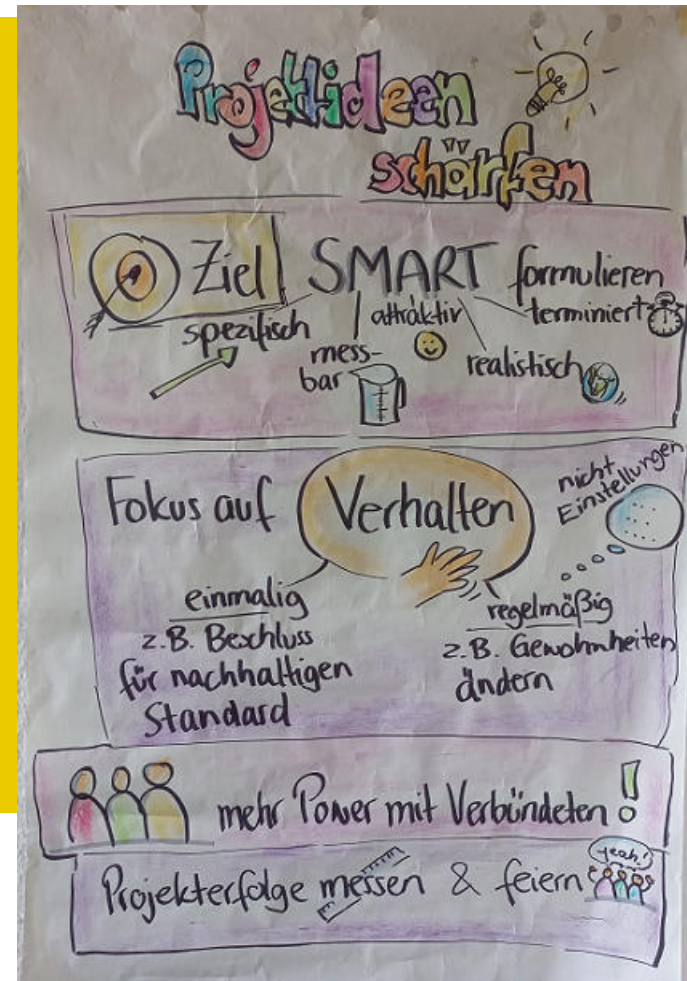 Projektideen
schärfen
Ziel SMART formulieren
spezifisch
mess-
bar
attraktiv
realistisch
terminiert
Fokus auf Verhalten
nicht
Einstellungen
einmalig
z.B. Beschluss
für nachhaltigen
Standard
regelmäßig
z.B. Gewohnheiten
ändern
mehr Power mit Verbündeten!
Projekterfolge messen & feiern
yeah!